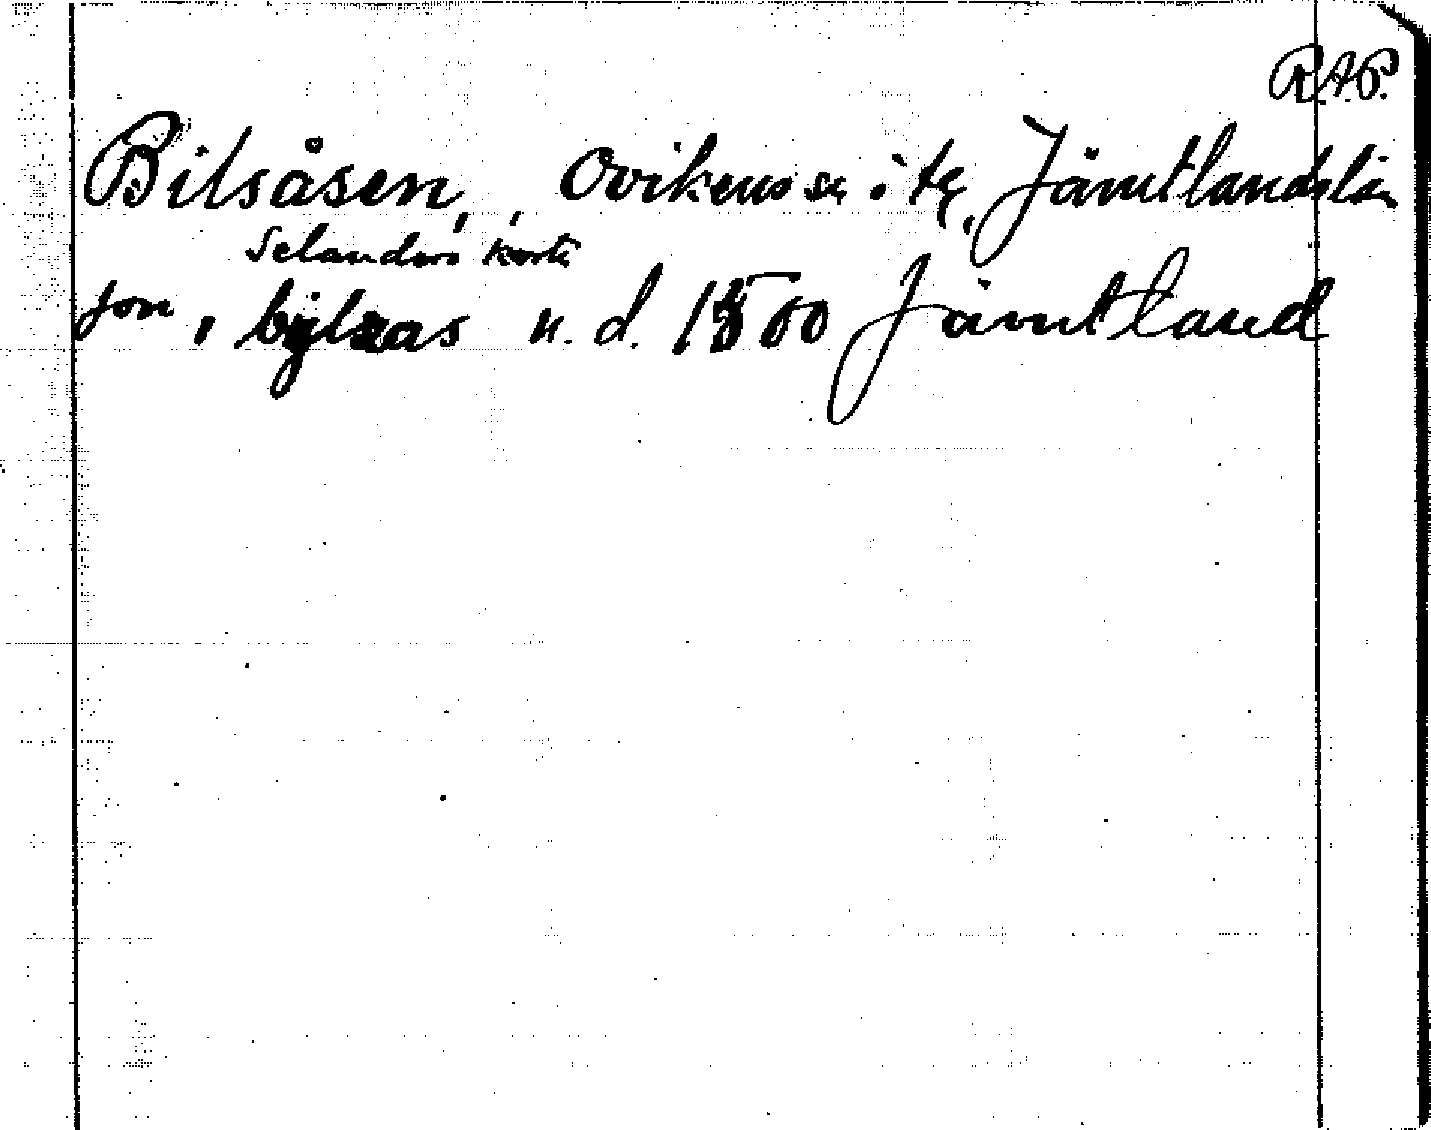 R.A.P.
Bilsåsen, , Ovikens sn i tg, Jämtlands län
Selanders karta
Jon i bylsas n.d. 1500 Jämtland